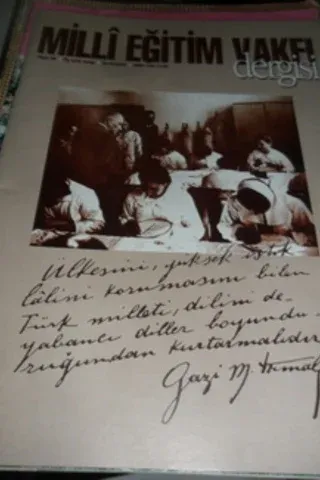 MİLLÎ EĞİTİM VAKFI
dergisi
Ülkesini, yüksek istik
lâlini korumasını bilen
Türk milleti, dilini de
yabancı diller boyundu-
ruğundan kurtarmalıdır
Gazi M. Kemal